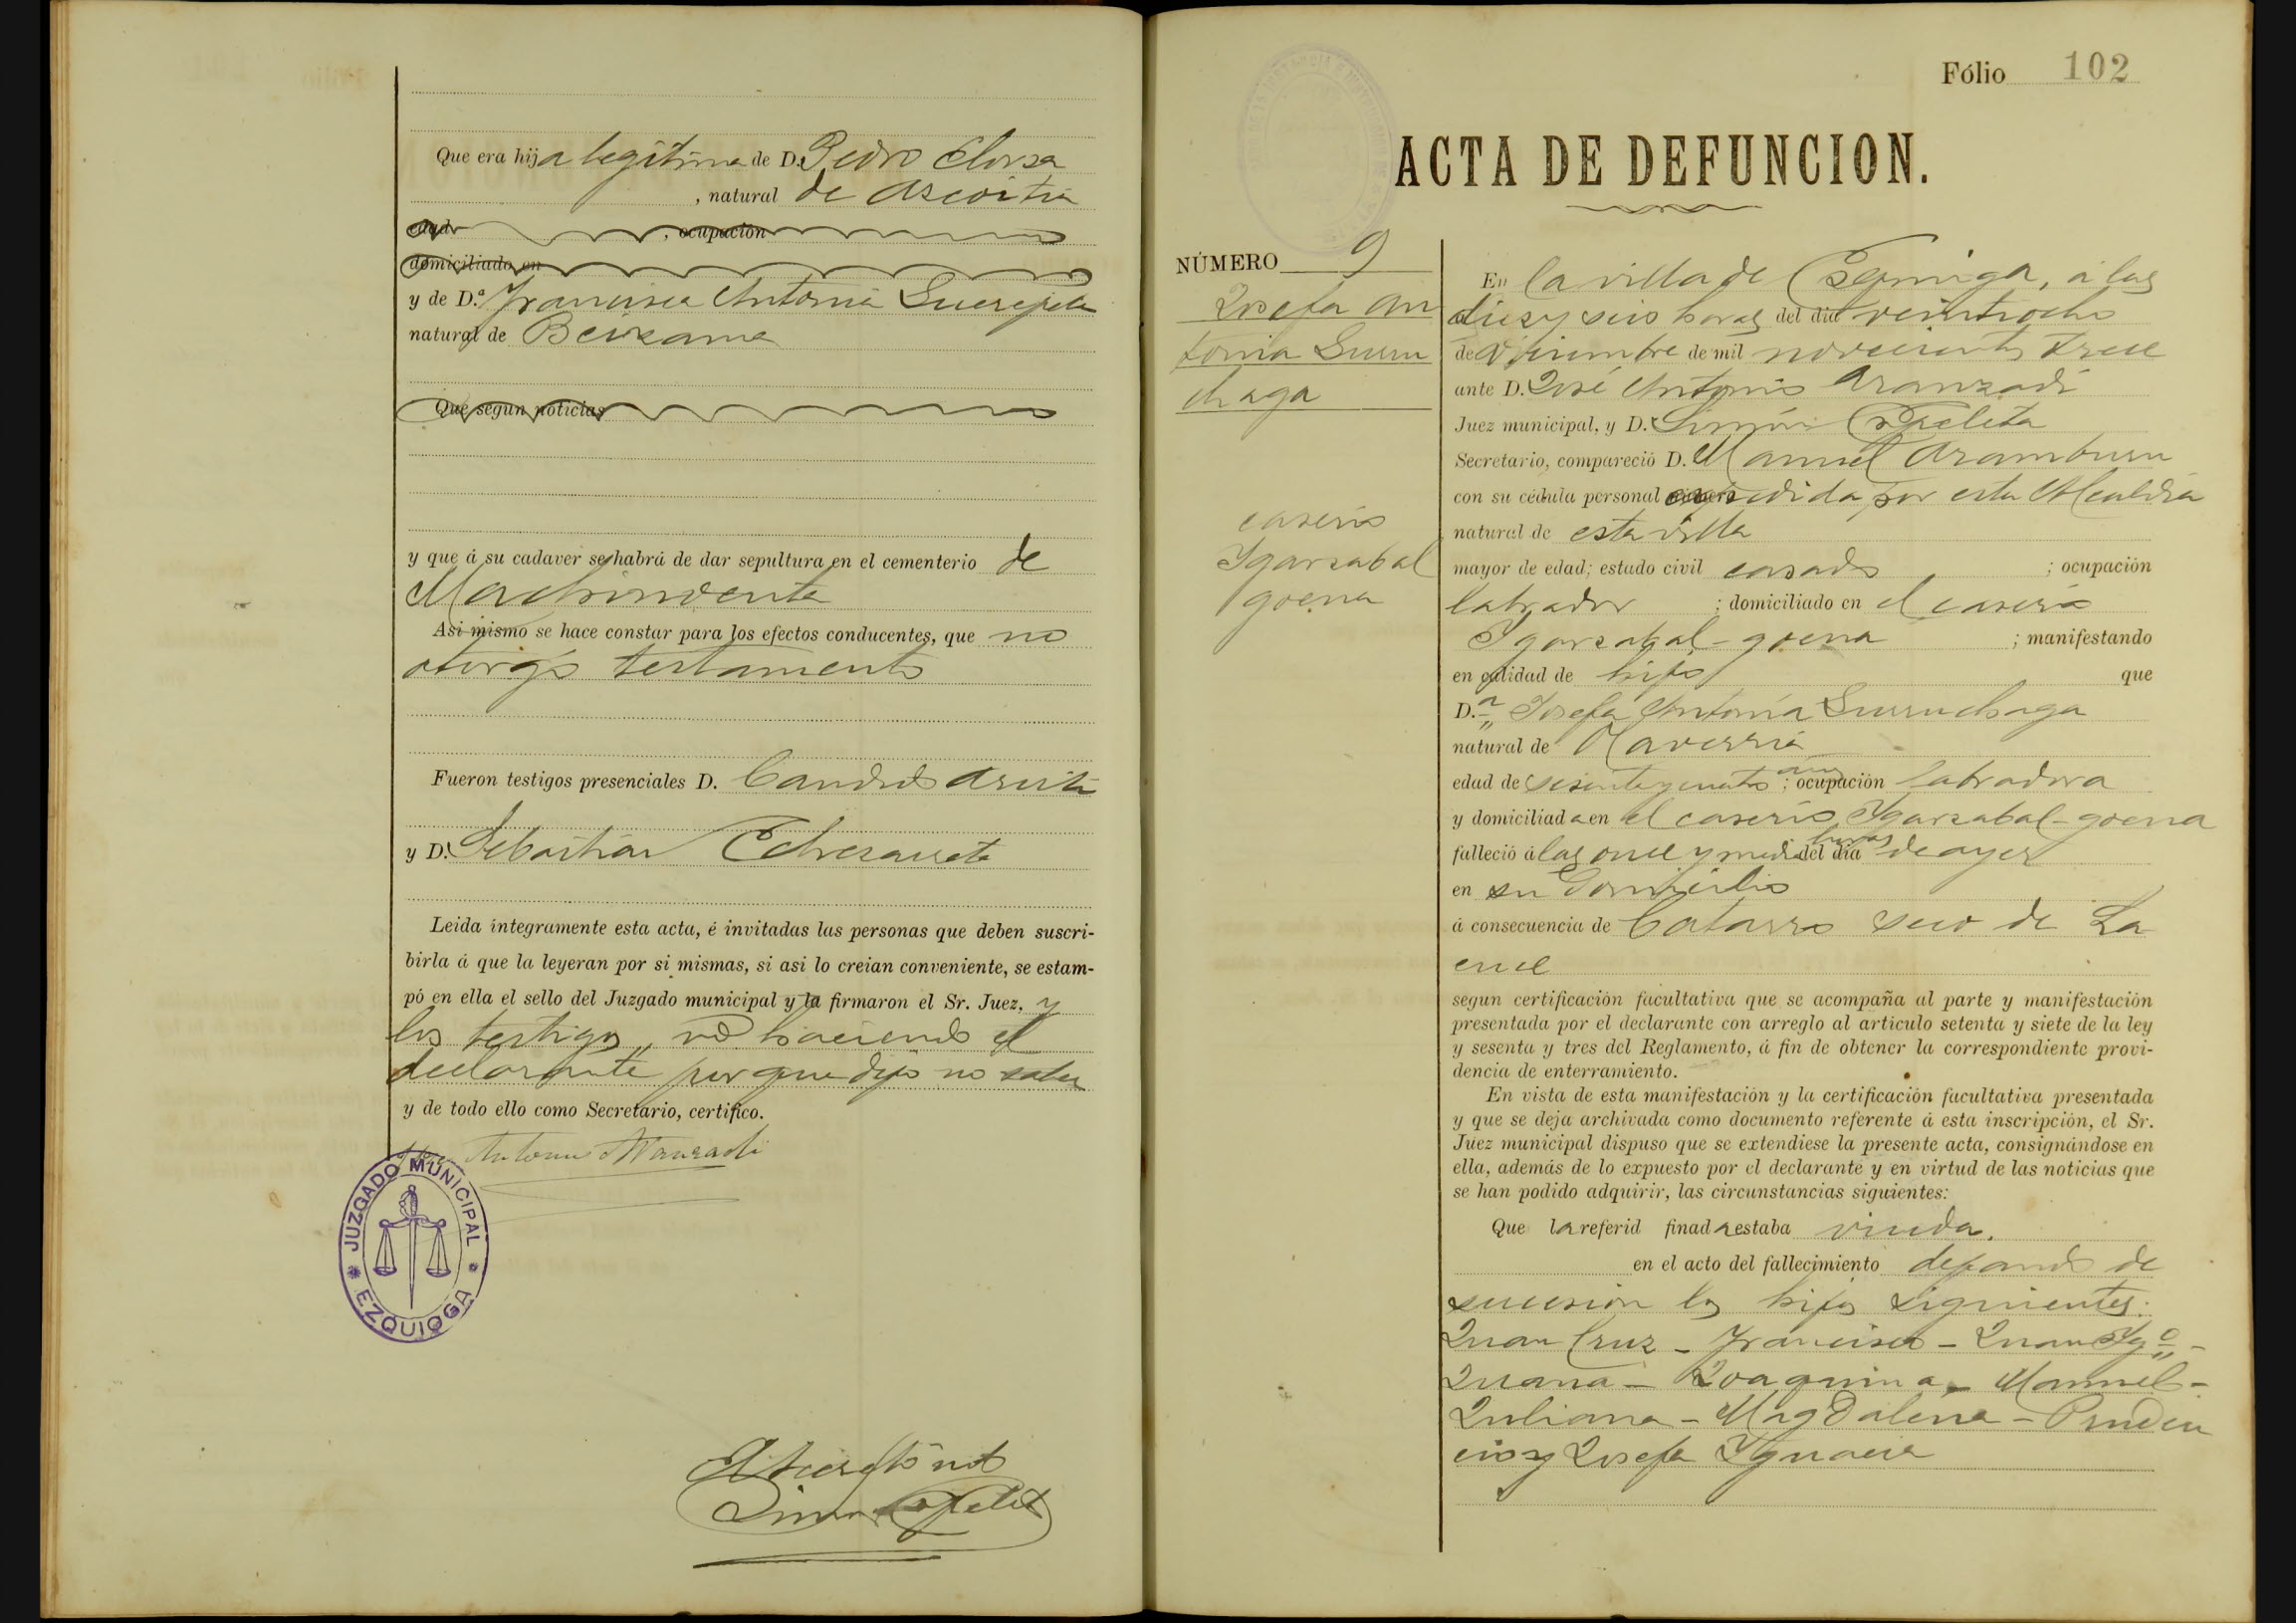 Que era hija legítima de D. Pedro Elorza
, natural de Ascoitia
edad , ocupación
domiciliado en
y de D.ª Francisca Antonia
natural de Beizama
Que segun noticias
y que á su cadaver se habrá de dar sepultura en el cementerio de
Machinventa
Asi mismo se hace constar para los efectos conducentes, que no
otorgó testamento
Fueron testigos presenciales D. Candido
y D. Sebastián Echezarreta
Leida íntegramente esta acta, é invitadas las personas que deben suscri-
birla á que la leyeran por si mismas, si asi lo creian conveniente, se estam-
pó en ella el sello del Juzgado municipal y la firmaron el Sr. Juez, y
los testigos, no haciendo el
declarante porque dijo no saber
y de todo ello como Secretario, certifico.
José Antonio Aranzadi
JUZGADO MUNICIPAL
EZQUIOGA
Simón
Fólio 102
ACTA DE DEFUNCION.
NÚMERO 9
Josefa An
tonia Surru
chaga
caserio
Ygarzabal
goena
En la villa de Ezquioga, á las
diez y seis horas del dia veintiocho
de mil novecientos trece
ante D. José Antonio Aranzadi
Juez municipal, y D. Simón
Secretario, compareció D. Manuel Aramburu
con su cédula personal expedida por esta Alcaldia
natural de esta villa
mayor de edad; estado civil casado ; ocupación
labrador ; domiciliado en el caserio
Ygarzabal-goena ; manifestando
en calidad de hijo que
D.ª Josefa Antonia Surruchaga
natural de Olaverria
edad de sesenta y cuatro años ; ocupación labradora
y domiciliada en el caserio Ygarzabal-goena
falleció á las once y media horas del dia de ayer
en su domicilio
á consecuencia de Catarro seco de La
enec
segun certificación facultativa que se acompaña al parte y manifestación
presentada por el declarante con arreglo al artículo setenta y siete de la ley
y sesenta y tres del Reglamento, á fin de obtener la correspondiente provi-
dencia de enterramiento.
En vista de esta manifestación y la certificación facultativa presentada
y que se deja archivada como documento referente á esta inscripción, el Sr.
Juez municipal dispuso que se extendiese la presente acta, consignándose en
ella, además de lo expuesto por el declarante y en virtud de las noticias que
se han podido adquirir, las circunstancias siguientes:
Que la referid finada estaba viuda.
en el acto del fallecimiento dejando de
sucesión los hijos siguientes:
Juan Cruz - Francisco - Juan Ygº -
Juana - Joaquina - Manuel -
Juliana - Magdalena - Pruden
cio y Josefa Ygnacia